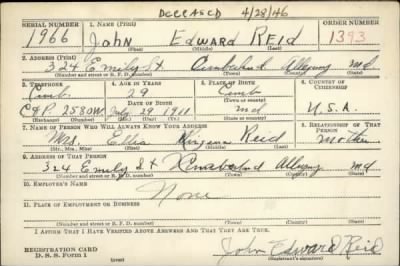 DECEASED 4/28/46
SERIAL NUMBER 1. NAME (Print) ORDER NUMBER
1966 John Edward Reid 1393
(First) (Middle) (Last)
2. ADDRESS (Print)
324 Emily St Cumberland Allegany Md
(Number and street or R. F. D. number) (Town) (County) (State)
3. TELEPHONE 4. AGE IN YEARS 5. PLACE OF BIRTH 6. COUNTRY OF CITIZENSHIP
Cumb. 29 Cumb
DATE OF BIRTH (Town or county)
C&P. 2580W July 29 1911 Md U.S.A.
(Exchange) (Number) (Mo.) (Day) (Yr.) (State or country)
7. NAME OF PERSON WHO WILL ALWAYS KNOW YOUR ADDRESS 8. RELATIONSHIP OF THAT PERSON
Mrs. Ella Virginia Reid Mother
(Mr., Mrs., Miss) (First) (Middle) (Last)
9. ADDRESS OF THAT PERSON
324 Emily St Cumberland Allegany Md
(Number and street or R. F. D. number) (Town) (County) (State)
10. EMPLOYER'S NAME
None
11. PLACE OF EMPLOYMENT OR BUSINESS
(Number and street or R. F. D. number) (Town) (County) (State)
I AFFIRM THAT I HAVE VERIFIED ABOVE ANSWERS AND THAT THEY ARE TRUE.
REGISTRATION CARD
D. S. S. Form 1 John Edward Reid
(Registrant's signature)